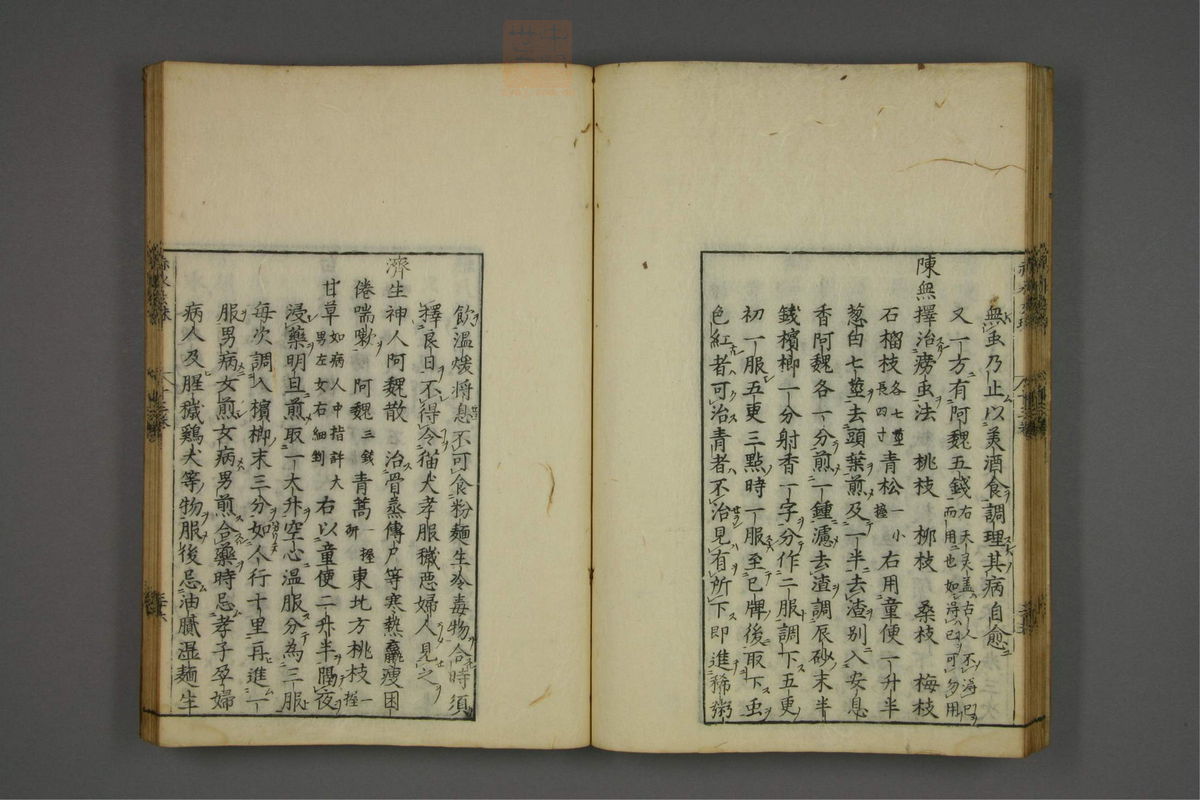 無虫乃止以美酒食調理其病自愈
又一方有阿魏五錢右天灵盖古人不得已而用也如得已可勿用
陳無擇治癆虫法 桃枝 柳枝 桑枝 梅枝
石榴枝各七莖長四寸青松一小握右用童便一升半
葱白七莖去頭葉煎及一半去渣別入安息
香阿魏各一分煎一鍾濾去渣調辰砂末半
錢檳榔一分射香一字分作二服調下五更
初一服五更三點時一服至巳牌後取下虫
色紅者可治青者不治見有所下即進稀粥
飲温煖將息不可食粉麵生冷毒物合時須
擇良日不得令猫犬孝服穢惡婦人見之
濟生神人阿魏散 治骨蒸傳尸等寒熱羸瘦困
倦喘嗽 阿魏三錢青蒿一握研東北方桃枝一握
甘草如病人中指許大男左女右細剉右以童便二升半隔夜
浸藥明旦煎取一大升空心温服分為三服
每次調入檳榔末三分如人行十里再進一
服男病女煎女病男煎合藥時忌孝子孕婦
病人及腥穢鷄犬等物服後忌油膩湿麵生